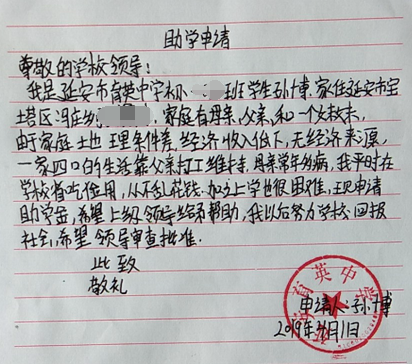 助学申请
尊敬的学校领导:
我是延安市育英中学 班学生孙博.家住延安市宝
塔区冯庄 家庭有母亲,父亲,和一个妹妹.
由于家庭土地理条件差,经济收入低下,无经济来源,
一家四口的生活靠父亲打工维持.母亲常年 病,我平时在
学校省吃俭用,从不乱花钱.加之上学也很困难,现申请
助学金,希望上级领导给予帮助,我以后努力学校,回报
社会,希望领导审查批准.
此致
敬礼
育英中学
申请人:孙博
2019年 月1日